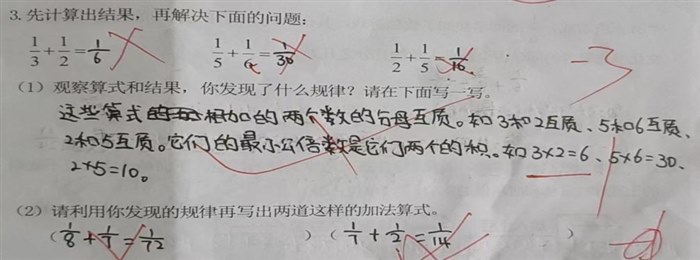 3.先计算出结果，再解决下面的问题：
1/3+1/2=1/6 1/5+1/6=1/30 1/2+1/5=1/10
-3
(1) 观察算式和结果，你发现了什么规律？请在下面写一写。
这些算式相加的两个数的分母互质。如3和2互质、5和6互质、
2和5互质。它们的最小公倍数是它们两个的积。如3×2=6、5×6=30、
2×5=10。
(2) 请利用你发现的规律再写出两道这样的加法算式。
(1/8+1/9=1/72) (1/7+1/2=1/14)